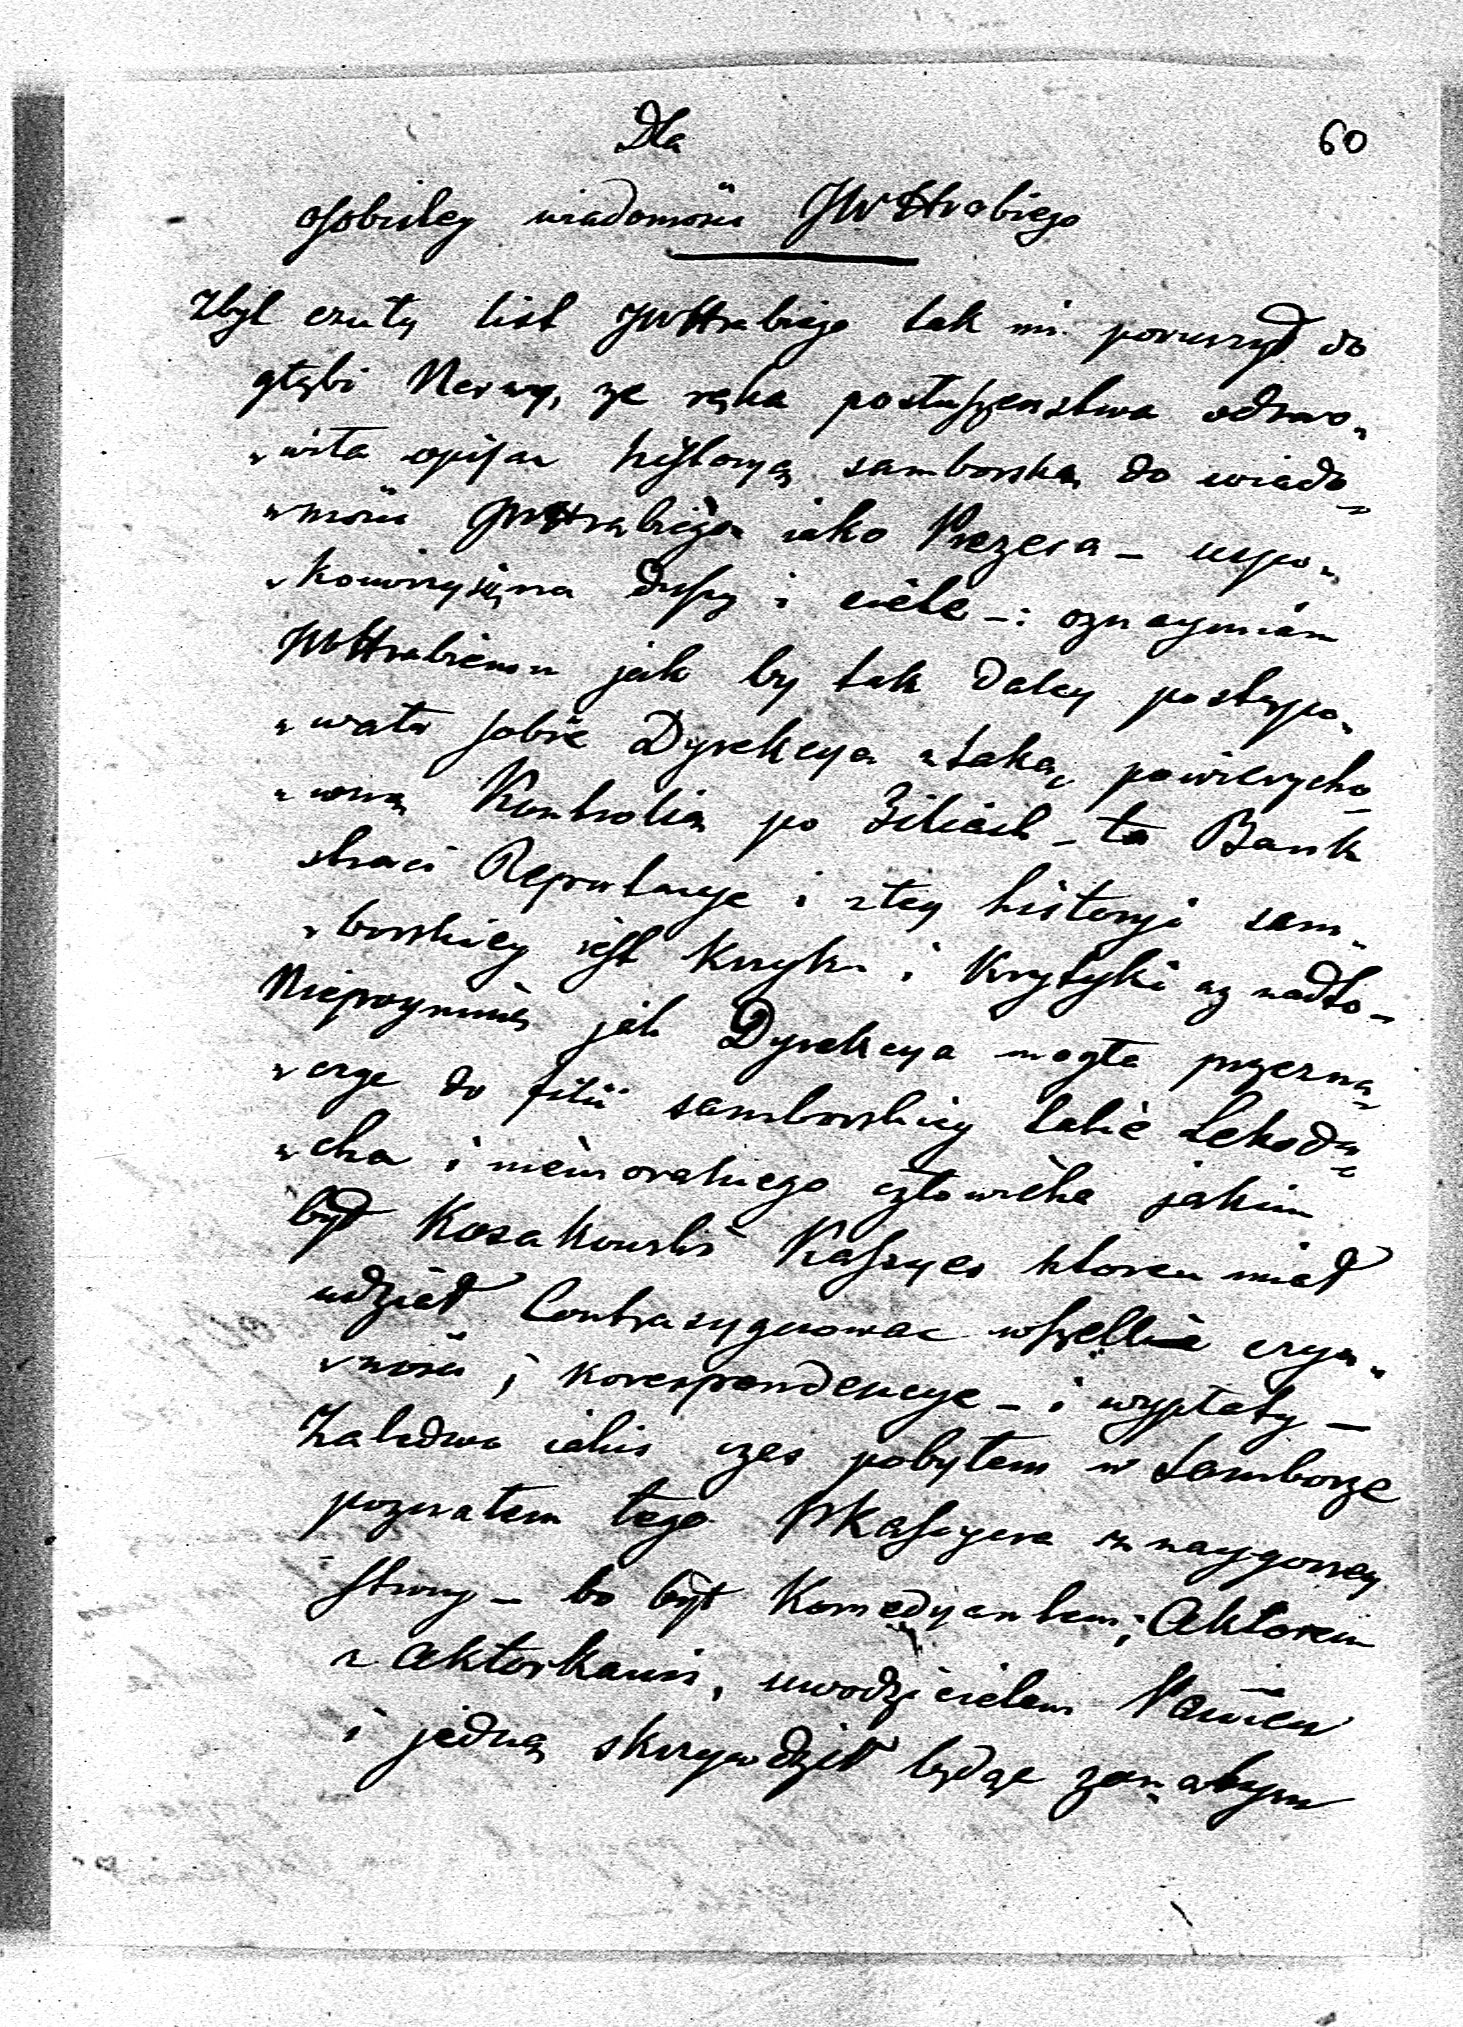 Dla
60
osobistey wiadomości JWHrabiego
Zbyt czuły list JWHrabiego tak mi poruszył do
głębi Nerwy, ze ręka posłuszenstwa odmo„
„wiła opisac historyą samborską do wiado„
„mości JWHrabiego iako Prezesa – uspo„
„koiwszy się na duszy i ciele –: oznaymiam
JWHrabiemu jak by tak daley postępo„
„wała sobie Dyrekcya z taką powierzcho„
„wną Kontrolią po Filiach – to Bank
straci Reputacye i z tey historyi sam„
„borskiey jest krzyku i Krytyki az nadto –
Niepoymuię jak Dyrekcya mogła przezna„
„czyc do filii samborskiey takie Lekkodu„
„cha i niemoralnego człowieka jakim
był Kosakowski Kassyer ktoren miał
udział Contrasygnowac wszelkie czyn„
„ności i korespondencye – i wypłaty –
Zaledwo iakis czas pobyłem w Samborze
poznałem tego PKassyera z naygorszey
strony – bo był Komedyantem; Aktorem
z Aktorkami, uwodzicielem Panien
i jedną skrzywdził będąc zonatym